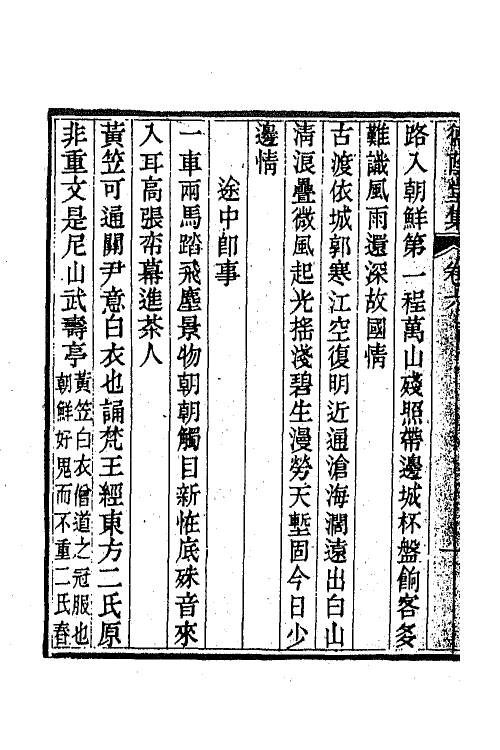 德蔭堂集 卷六
路入朝鮮第一程萬山殘照帶邊城杯盤餉客多
難識風雨還深故國情
古渡依城郭寒江空復明近通滄海濶遠出白山
清浪疊微風起光搖淺碧生漫勞天塹固今日少
邊情
途中卽事
一車兩馬踏飛塵景物朝朝觸目新怪底殊音來
入耳高張帟幕進茶人
黃笠可通關尹意白衣也誦梵王經東方二氏原
非重文是尼山武壽亭黃笠白衣僧道之冠服也
朝鮮好鬼而不重二氏春